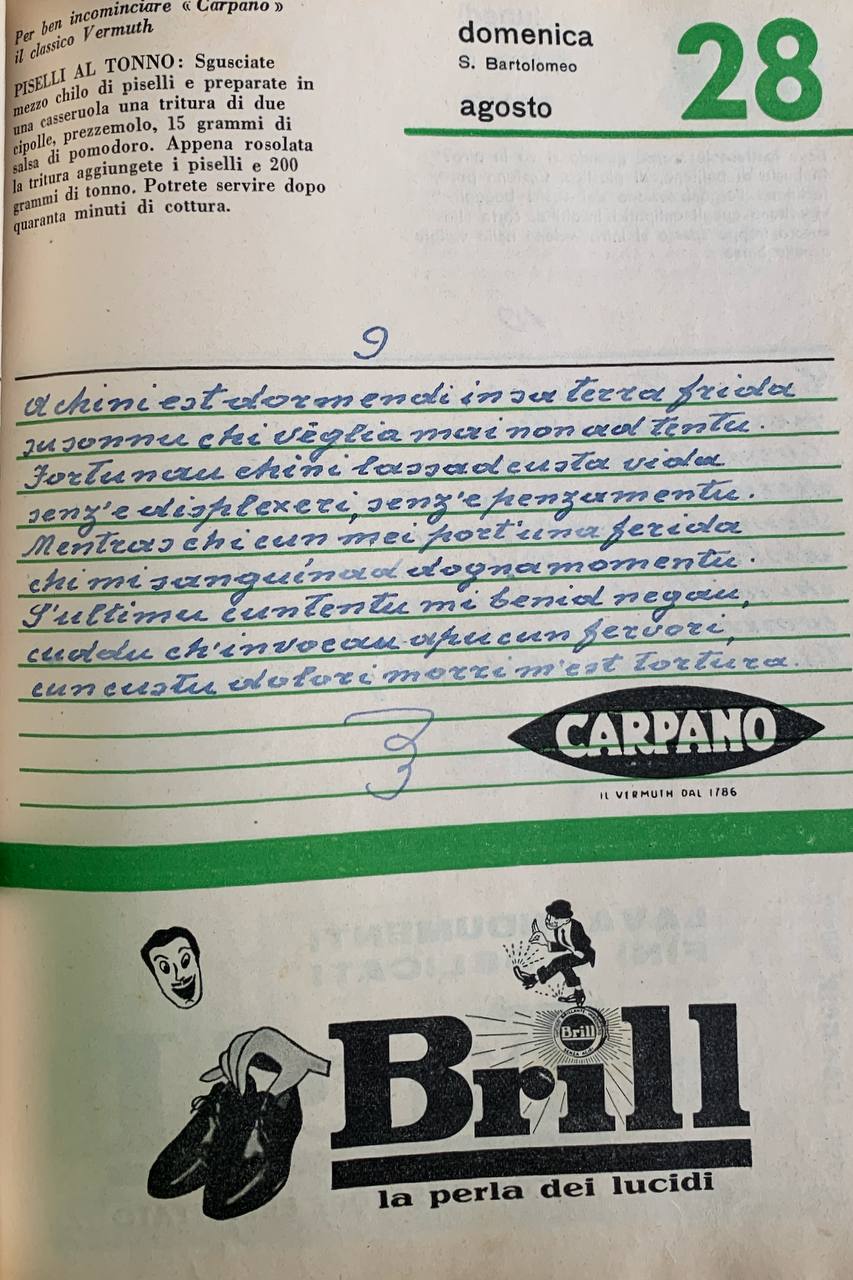 Per ben incominciare « Carpano »
il classico Vermuth
PISELLI AL TONNO: Sgusciate
mezzo chilo di piselli e preparate in
una casseruola una tritura di due
cipolle, prezzemolo, 15 grammi di
salsa di pomodoro. Appena rosolata
la tritura aggiungete i piselli e 200
grammi di tonno. Potrete servire dopo
quaranta minuti di cottura.
domenica
S. Bartolomeo
agosto
28
9
A chini est dormendi in sa terra frida
su sonnu chi véglia mai non ad tentu.
Fortunau chini lassad custa vida
senz'e displexeri, senz'e penzamentu.
Mentras chi cun mei port'una ferida
chi mi sanguínad dogna momentu.
S'ultimu cuntentu mi benid negau,
cuddu ch'invocau apu cun fervori,
cun custu dolori morri m'est tortura.
CARPANO
IL VERMUTH DAL 1786
Brill
Brill
la perla dei lucidi